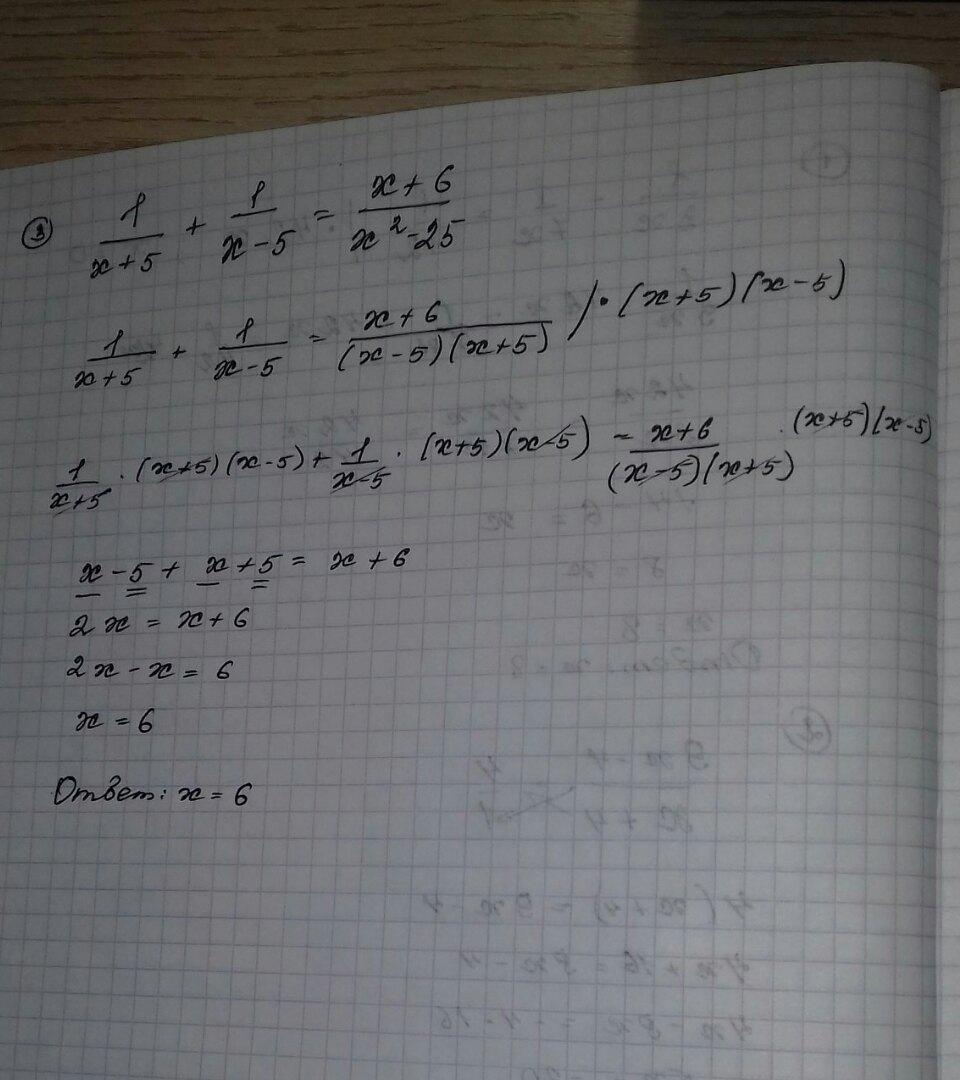 ③ 1/(x+5) + 1/(x-5) = (x+6)/(x²-25)
1/(x+5) + 1/(x-5) = (x+6)/((x-5)(x+5)) / · (x+5)(x-5)
1/(x+5) · (x+5)(x-5) + 1/(x-5) · (x+5)(x-5) = (x+6)/((x-5)(x+5)) · (x+5)(x-5)
x - 5 + x + 5 = x + 6
2x = x + 6
2x - x = 6
x = 6
Ответ: x = 6